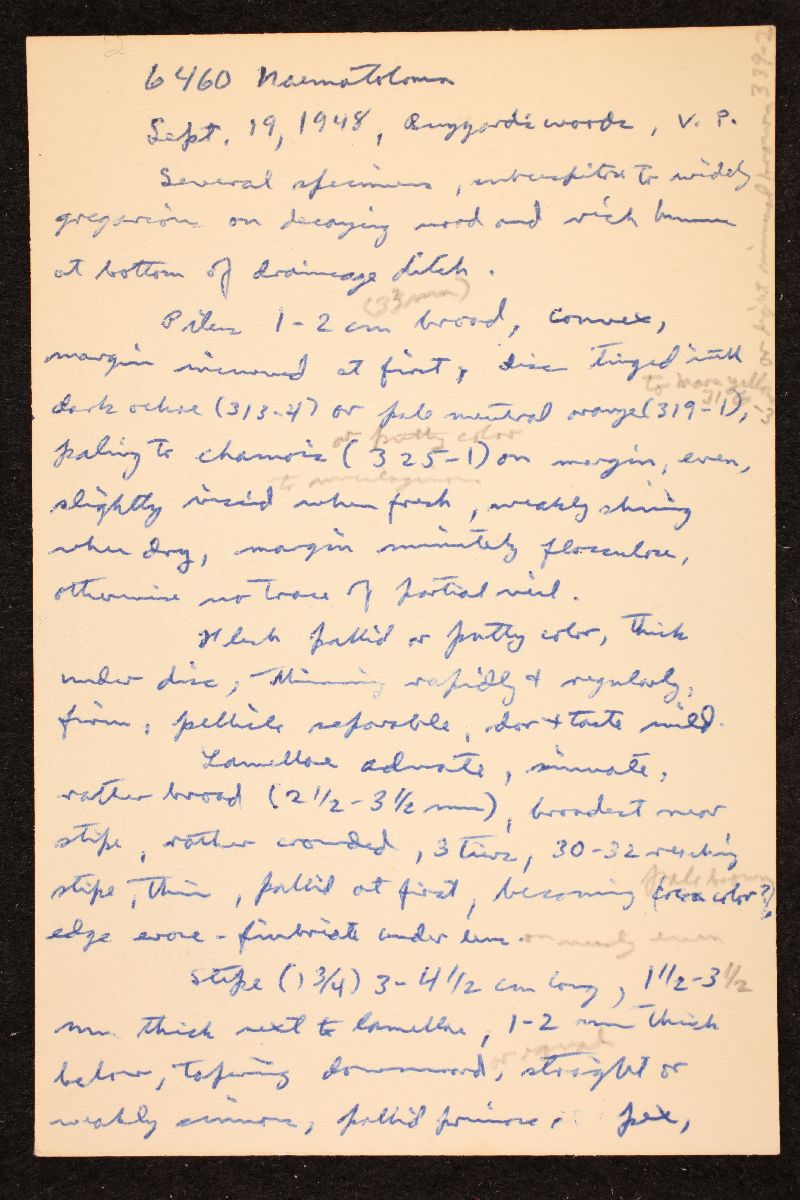 6460 Naematoloma
Sept. 19, 1948, Buggard's woods, V. P.
Several specimens, subcespitose to widely
gregarious on decaying wood and rich humus
at bottom of drainage ditch.
(33 mm)
Pileus 1-2 cm broad, convex,
margin incurved at first, disc tinged with
to mars yellow
dark ochre (313-4) or pale neutral orange (319-1),
or putty color
paling to chamois (325-1) on margin, even,
to mucilaginous
slightly viscid when fresh, weakly shining
when dry, margin minutely flocculose,
otherwise no trace of partial veil.
Flesh pallid or putty color, thick
under disc, thinning rapidly & regularly,
firm, pellicle separable, odor & taste mild.
Lamellae adnate, sinuate,
rather broad (2 1/2-3 1/2 mm), broadest near
stipe, rather crowded, 3 tiers, 30-32 reaching
pale brown
stipe, thin, pallid at first, becoming (cocoa color?),
edge erose-fimbriate under lens. or nearly even
Stipe (1 3/4) 3-4 1/2 cm long, 1 1/2-3 1/2
mm thick next to lamellae, 1-2 mm thick
or equal
below, tapering downward, straight or
weakly sinuous, pallid
or light mineral brown 339-2